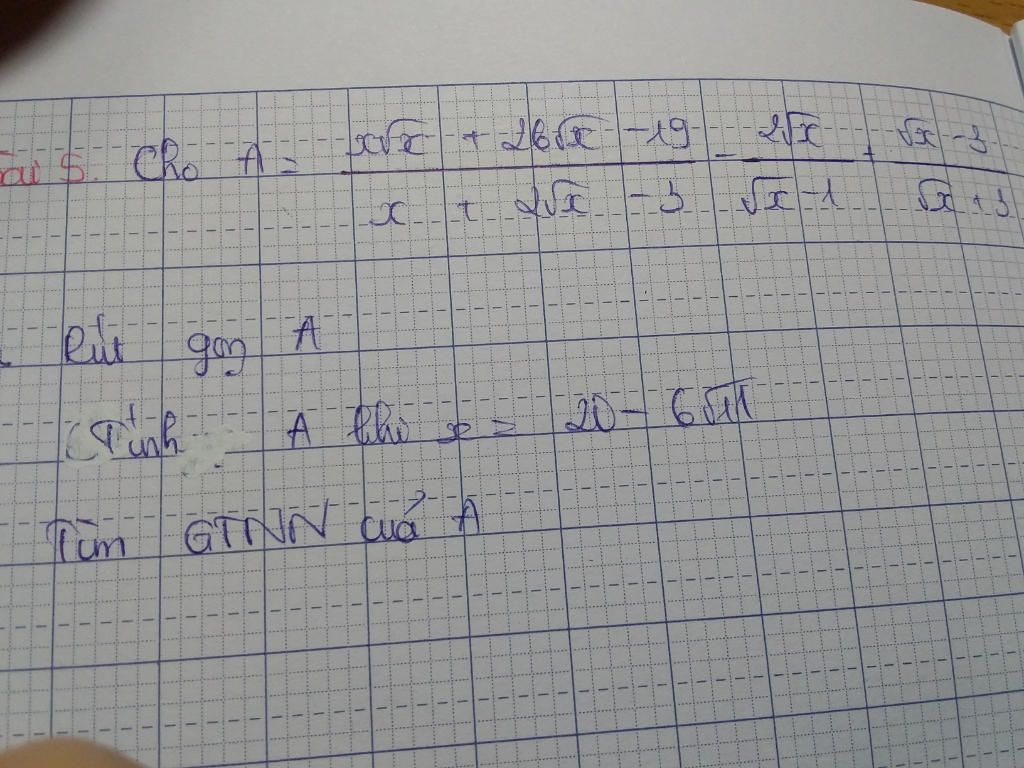 Câu 5. Cho A = (x√x + 26√x - 19)/(x + 2√x - 3) - 2√x/(√x - 1) + (√x - 3)/(√x + 3)
Rút gọn A
Tính A khi x = 20 - 6√11
Tìm GTNN của A